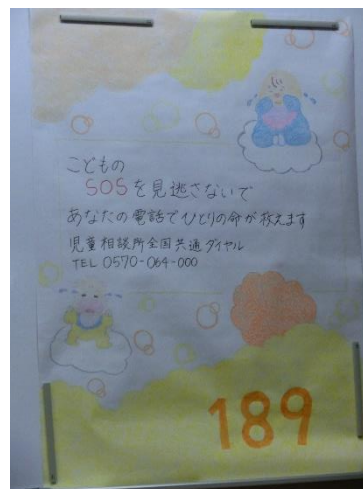 こどもの
SOSを見逃さないで
あなたの電話でひとりの命が救えます
児童相談所全国共通ダイヤル
TEL 0570-064-000
189